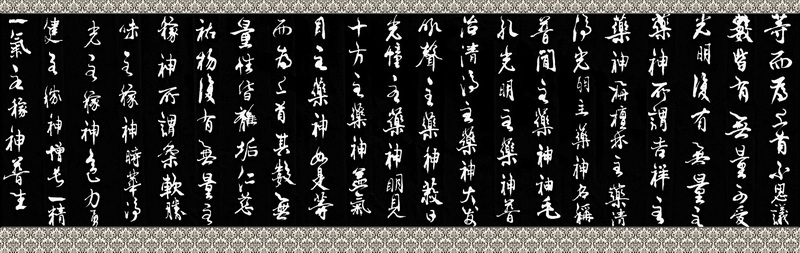 等而為上首不思議
數皆有無量可愛
光明復有無量主
藥神所謂吉祥主
藥神栴檀林主藥清
淨光明主藥神名稱
普聞主藥神袖毛
孔光明主藥神普
治清淨主藥神大發
吼聲主藥神蔽日
光幢主藥神明見
十方主藥神益氣
目主藥神如是等
而為上首其數無
量性皆離垢仁慈
祐物復有無量主
稼神所謂柔軟勝
味主稼神時華淨
光主稼神色力勇
健主稼神增長精
氣主稼神普生